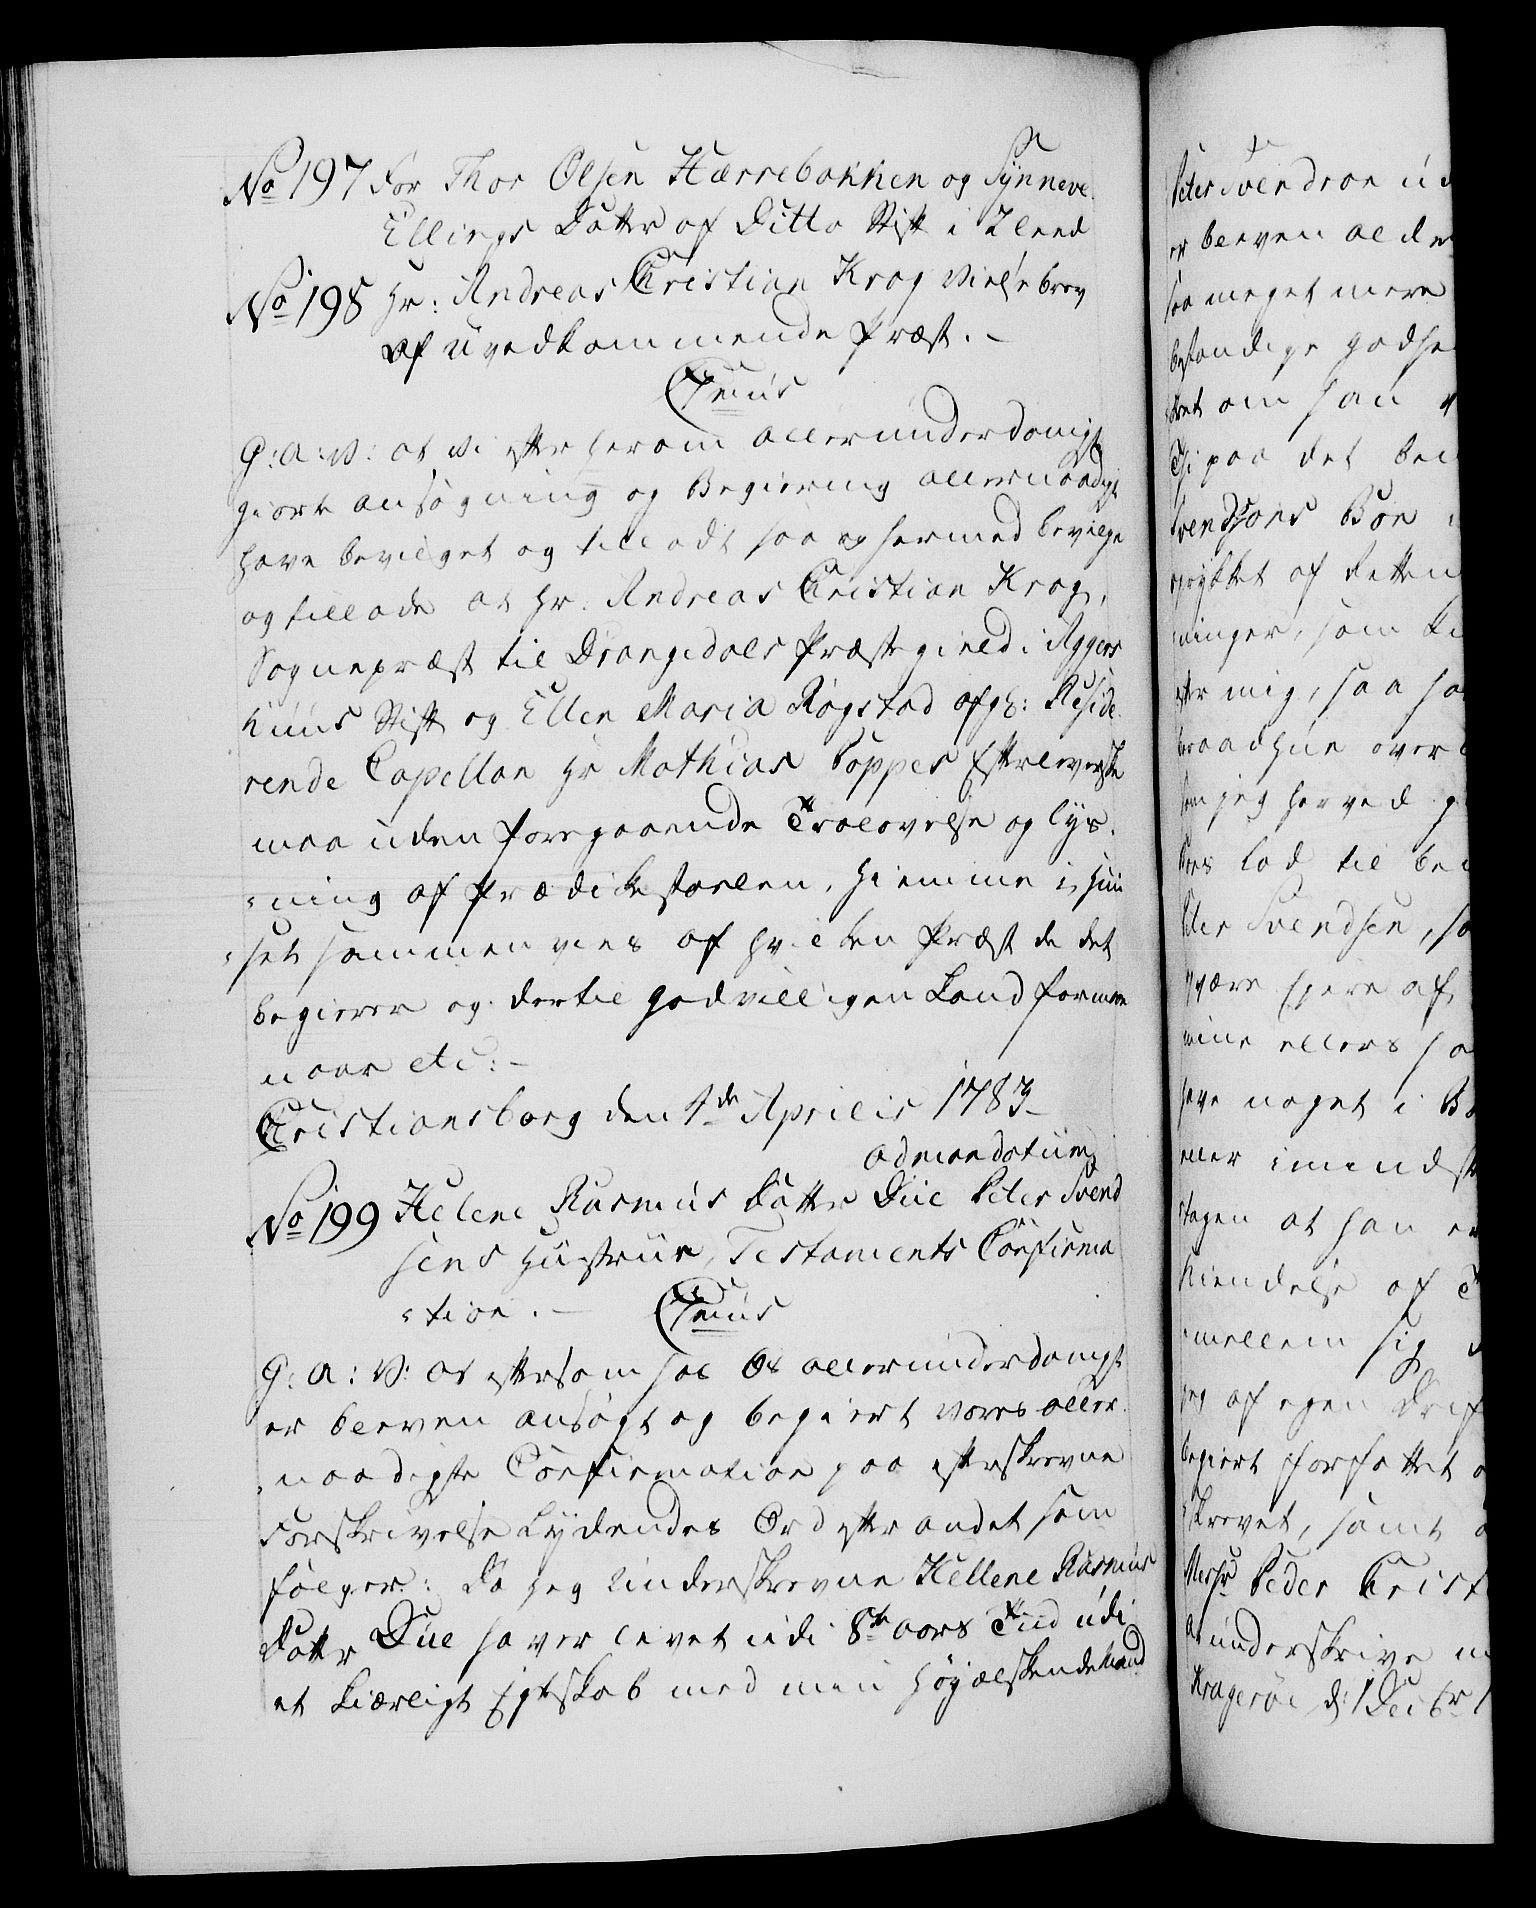 No 197 for Thor Olsen Hærrebakken og Synneve
Ellings Datter af Ditto Stift i 2 Leed
No 198 Hr: Andreas Christian Krog Vielse brev
af uvedkommende Præst. –
C Tenús
G: A: V: at vi efter herom allerunderdanigst
giort ansögning og Begiering allernaadigst
have bevilget og tilladt saa og hermed bevilge
og tillade at Hr. Andreas Christian Krog,
Sognepræst til Drangedals Præstegield i Aggers
huus Stift og Ellen Maria Rögstad afg: Reside
rende Capellan Hr Mathias Poppes Efterleverske
maa uden foregaaende Trolovelse og lys-
ning af Prædikestoelen, hiemme i Huu
set sammenvies af hvilken Præst de det
begierer og dertil godvilligen Kand formaae
naar etc: –
Christiansborg den 4de Aprilis 1783
ad mandatum
No 199 Helene Rasmus Datter Due Peter Svend
sens Hustrue, Testaments Confirma
tion. – C Tenús
G: A: V: at eftersom hos Os allerunderdanigst
er bleven ansögt og begiert vores aller
naadigste Confirmation paa efterskrevne
Forskrivelse Lydendes Ord efter andet som
fölger: Da jeg Underskrevne Hellene Rasmus
Datter Due haver levet udi 8te aars Tiid udi
et kiærligt Egteskab med min höyælskende Mand
Peter Svendson
er bleven
saa meget mere
bestandige godhe
om han
Thi paa det
Svendsons Boe
trykket af Retten
ninger, som
efter mig, saa ha
raadhun over
som jeg herved
lod til
Peter Svendsen, sa
være Eiere af
mine ellers ha
have noget i Bo
eller imindste
tagen at han er
kiendelse af T
mellem sig
jeg af egen Drif
begiert forfattet
skrevet, samt
Monsr Peder Crist
at underskrive
Kragerøe d: 1 Decbr 1